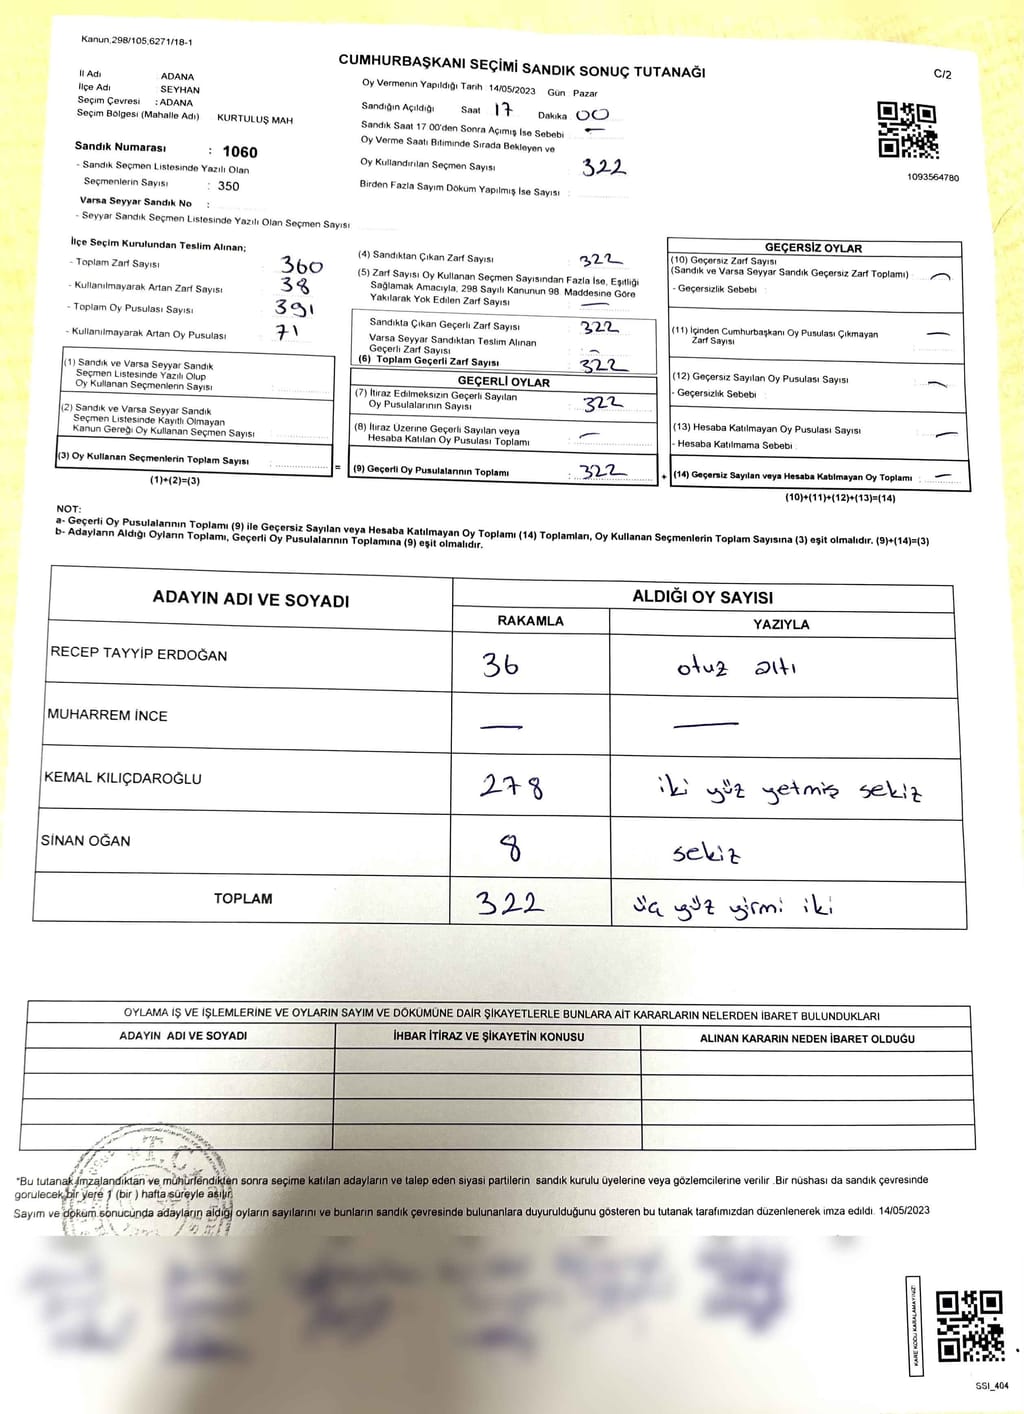 Kanun,298/105,6271/18-1
CUMHURBAŞKANI SEÇİMİ SANDIK SONUÇ TUTANAĞI
C/2
İl Adı : ADANA
İlçe Adı : SEYHAN
Seçim Çevresi : ADANA
Seçim Bölgesi (Mahalle Adı) KURTULUŞ MAH
Sandık Numarası : 1060
- Sandık Seçmen Listesinde Yazılı Olan
Seçmenlerin Sayısı : 350
Varsa Seyyar Sandık No :
- Seyyar Sandık Seçmen Listesinde Yazılı Olan Seçmen Sayısı
Oy Vermenin Yapıldığı Tarih 14/05/2023 Gün Pazar
Sandığın Açıldığı Saat 17 Dakika 00
Sandık Saat 17 00'den Sonra Açımış İse Sebebi —
Oy Verme Saati Bitiminde Sırada Bekleyen ve
Oy Kullandırılan Seçmen Sayısı 322
Birden Fazla Sayım Döküm Yapılmış İse Sayısı :
1093564780
İlçe Seçim Kurulundan Teslim Alınan;
- Toplam Zarf Sayısı 360
- Kullanılmayarak Artan Zarf Sayısı 38
- Toplam Oy Pusulası Sayısı 391
- Kullanılmayarak Artan Oy Pusulası 71
(1) Sandık ve Varsa Seyyar Sandık
Seçmen Listesinde Yazılı Olup
Oy Kullanan Seçmenlerin Sayısı :
(2) Sandık ve Varsa Seyyar Sandık
Seçmen Listesinde Kayıtlı Olmayan
Kanun Gereği Oy Kullanan Seçmen Sayısı :
(3) Oy Kullanan Seçmenlerin Toplam Sayısı : =
(1)+(2)=(3)
(4) Sandıktan Çıkan Zarf Sayısı : 322
(5) Zarf Sayısı Oy Kullanan Seçmen Sayısından Fazla İse, Eşitliği
Sağlamak Amacıyla, 298 Sayılı Kanunun 98. Maddesine Göre
Yakılarak Yok Edilen Zarf Sayısı : —
Sandıkta Çıkan Geçerli Zarf Sayısı : 322
Varsa Seyyar Sandıktan Teslim Alınan
Geçerli Zarf Sayısı : —
(6) Toplam Geçerli Zarf Sayısı : 322
GEÇERLİ OYLAR
(7) İtiraz Edilmeksizin Geçerli Sayılan
Oy Pusulalarının Sayısı : 322
(8) İtiraz Üzerine Geçerli Sayılan veya
Hesaba Katılan Oy Pusulası Toplamı : —
(9) Geçerli Oy Pusulalarının Toplamı : 322 +
GEÇERSİZ OYLAR
(10) Geçersiz Zarf Sayısı
(Sandık ve Varsa Seyyar Sandık Geçersiz Zarf Toplamı) : —
- Geçersizlik Sebebi :
(11) İçinden Cumhurbaşkanı Oy Pusulası Çıkmayan
Zarf Sayısı : —
(12) Geçersiz Sayılan Oy Pusulası Sayısı : —
- Geçersizlik Sebebi :
(13) Hesaba Katılmayan Oy Pusulası Sayısı : —
- Hesaba Katılmama Sebebi :
(14) Geçersiz Sayılan veya Hesaba Katılmayan Oy Toplamı : —
(10)+(11)+(12)+(13)=(14)
NOT:
a- Geçerli Oy Pusulalarının Toplamı (9) ile Geçersiz Sayılan veya Hesaba Katılmayan Oy Toplamı (14) Toplamları, Oy Kullanan Seçmenlerin Toplam Sayısına (3) eşit olmalıdır. (9)+(14)=(3)
b- Adayların Aldığı Oyların Toplamı, Geçerli Oy Pusulalarının Toplamına (9) eşit olmalıdır.
ADAYIN ADI VE SOYADI ALDIĞI OY SAYISI
RAKAMLA YAZIYLA
RECEP TAYYİP ERDOĞAN 36 otuz altı
MUHARREM İNCE — —
KEMAL KILIÇDAROĞLU 278 iki yüz yetmiş sekiz
SİNAN OĞAN 8 sekiz
TOPLAM 322 üç yüz yirmi iki
OYLAMA İŞ VE İŞLEMLERİNE VE OYLARIN SAYIM VE DÖKÜMÜNE DAİR ŞİKAYETLERLE BUNLARA AİT KARARLARIN NELERDEN İBARET BULUNDUKLARI
ADAYIN ADI VE SOYADI İHBAR İTİRAZ VE ŞİKAYETİN KONUSU ALINAN KARARIN NEDEN İBARET OLDUĞU
T.C.
*Bu tutanak imzalandıktan ve mühürlendikten sonra seçime katılan adayların ve talep eden siyasi partilerin sandık kurulu üyelerine veya gözlemcilerine verilir .Bir nüshası da sandık çevresinde
görülecek bir yere 1 (bir ) hafta süreyle asılır.
Sayım ve döküm sonucunda adayların aldığı oyların sayılarını ve bunların sandık çevresinde bulunanlara duyurulduğunu gösteren bu tutanak tarafımızdan düzenlenerek imza edildi. 14/05/2023
KARE KODU KARALAMAYINIZ!
SSI_404